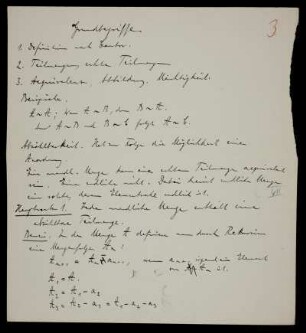 Grundbegriffe.
3
1. Definition nach Cantor.
2. Teilmengen, echte Teilmengen
3. Aequivalenz, Abbildung, Mächtigkeit.
Beispiele.
A ~ A; Wenn A ~ B, dann B ~ A.
aus A ~ B und B ~ C folgt A ~ C.
Abzählbarkeit. Hat zur Folge die Möglichkeit einer
Anordnung.
Eine unendl. Menge kann einer echten Teilmenge aequivalent
sein. Eine endliche nicht. Dabei heisst endliche Menge
eine solche, deren Elementzahl endlich ist.
Hauptsatz 1. Jede unendliche Menge enthält eine
abzählbare Teilmenge.
Beweis. In der Menge A definieren wir durch Rekursion
eine Mengenfolge Aₙ:
Aₙ₊₁ = Aₙ - aₙ, wenn aₙ irgend ein Element
von Aₙ ist.
A₁ = A.
A₂ = A₁ - a₁
A₃ = A₂ - a₂ = A₁ - a₁ - a₂